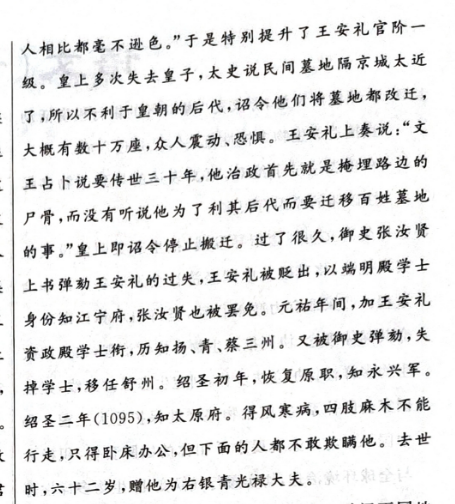 人相比都毫不逊色。”于是特别提升了王安礼官阶一
级。皇上多次失去皇子，太史说民间墓地隔京城太近
了，所以不利于皇朝的后代，诏令他们将墓地都改迁，
大概有数十万座，众人震动、恐惧。王安礼上奏说：“文
王占卜说要传世三十年，他治政首先就是掩埋路边的
尸骨，而没有听说他为了利其后代而要迁移百姓墓地
的事。”皇上即诏令停止搬迁。过了很久，御史张汝贤
上书弹劾王安礼的过失，王安礼被贬出，以端明殿学士
身份知江宁府，张汝贤也被罢免。元祐年间，加王安礼
资政殿学士衔，历知扬、青、蔡三州。又被御史弹劾，失
掉学士，移任舒州。绍圣初年，恢复原职，知永兴军。
绍圣二年(1095)，知太原府。得风寒病，四肢麻木不能
行走，只得卧床办公，但下面的人都不敢欺瞒他。去世
时，六十二岁，赠他为右银青光禄大夫。